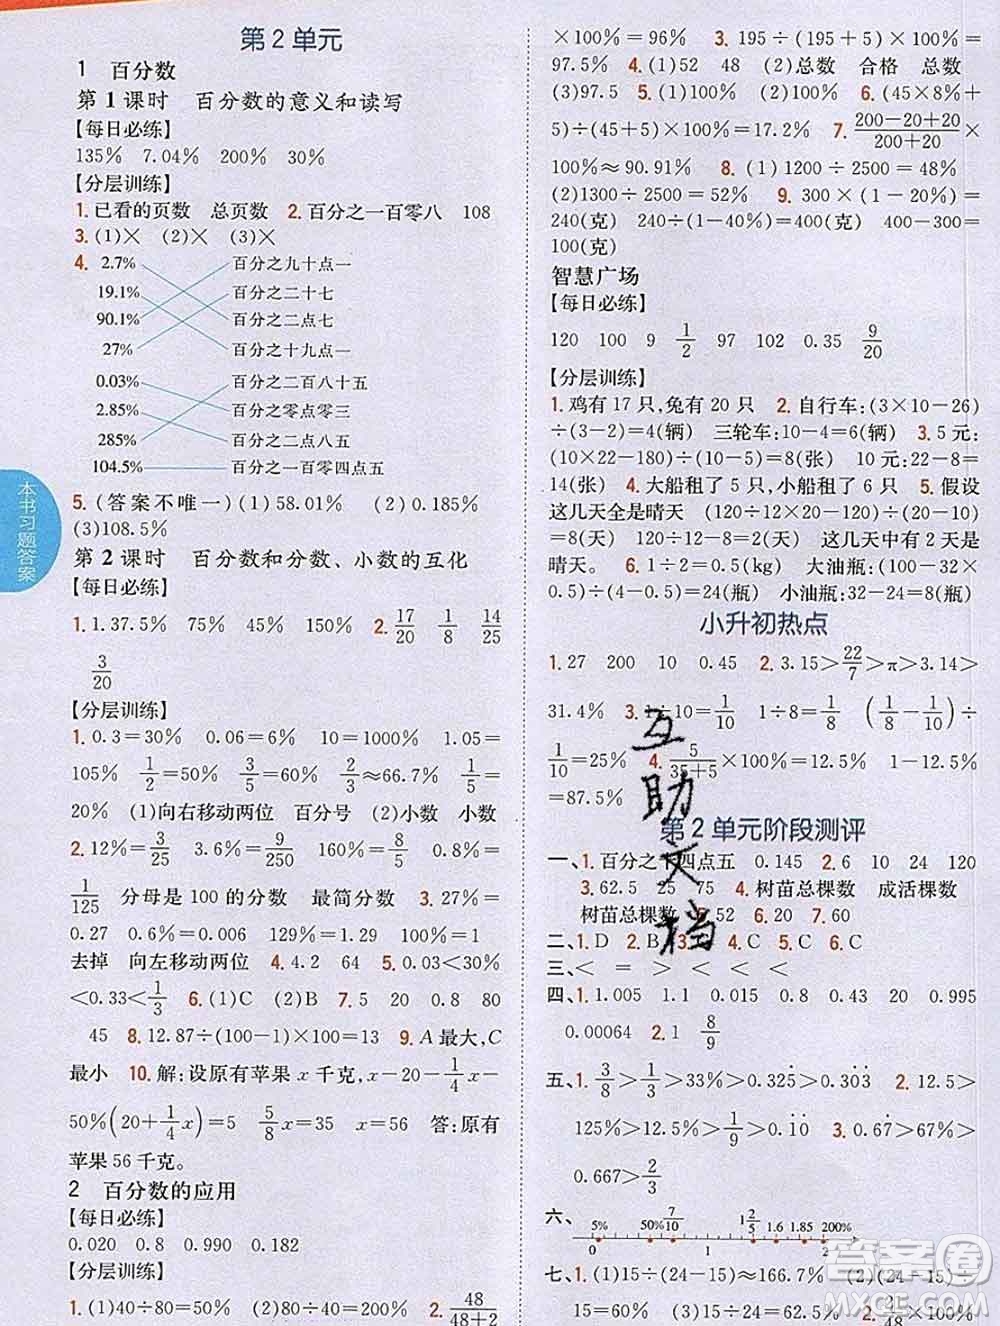 第2单元
1 百分数
第1课时 百分数的意义和读写
【每日必练】
135% 7.04% 200% 30%
【分层训练】
1.已看的页数 总页数 2.百分之一百零八 108
3.(1)× (2)× (3)×
4. 2.7% 百分之九十点一
19.1% 百分之二十七
90.1% 百分之二点七
27% 百分之十九点一
0.03% 百分之二百八十五
2.85% 百分之零点零三
285% 百分之二点八五
104.5% 百分之一百零四点五
5.(答案不唯一)(1)58.01% (2)0.185%
(3)108.5%
第2课时 百分数和分数、小数的互化
【每日必练】
1.37.5% 75% 45% 150% 2.17/20 1/8 14/25
3/20
【分层训练】
1.0.3=30% 0.06=6% 10=1000% 1.05=
105% 1/2=50% 3/5=60% 2/3≈66.7% 0.2=
20% (1)向右移动两位 百分号 (2)小数 小数
2.12%=3/25 3.6%=9/250 160%=8/5 0.8%=
1/125 分母是100的分数 最简分数 3.27%=
0.27 0.6%=0.006 129%=1.29 100%=1
去掉 向左移动两位 4.4.2 64 5.0.03<30%
<0.33<1/3 6.(1)C (2)B 7.50 0.8 80
45 8.12.87÷(100-1)×100=13 9.A最大,C
最小 10.解:设原有苹果x千克,x-20-1/4x-
50%(20+1/4x)=5 5/8x=35 x=56 答:原有
苹果56千克。
2 百分数的应用
【每日必练】
0.020 0.8 0.990 0.182
【分层训练】
1.(1)40÷80=50% (2)80÷40=200% 2.48/48+2
×100%=96% 3.195÷(195+5)×100%=
97.5% 4.(1)52 48 (2)总数 合格 总数
(3)97.5 5.(1)100% (2)100% 6.(45×8%+
5)÷(45+5)×100%=17.2% 7.200-20+20/200+20×
100%≈90.91% 8.(1)1200÷2500=48%
(2)1300÷2500=52% 9.300×(1-20%)=
240(克) 240÷(1-40%)=400(克) 400-300=
100(克)
智慧广场
【每日必练】
120 100 9 1/2 97 102 0.35 9/20
【分层训练】
1.鸡有17只,兔有20只 2.自行车:(3×10-26)
÷(3-2)=4(辆) 三轮车:10-4=6(辆) 3.5元:
(10×22-180)÷(10-5)=8(张) 10元:22-8=
14(张) 4.大船租了5只,小船租了8只 5.假设
这几天全是晴天 (120÷12×20-120)÷(20-10)
=8(天) 120÷12-8=2(天) 这几天中有2天是
晴天。 6.1÷2=0.5(kg) 大油瓶:(4×32-32×
0.5)÷(4-0.5)=32(瓶) 小油瓶:32-24=8(瓶)
小升初热点
1.27 200 10 0.45 2.3.15>22/7>π>3.14>
31.4% 3.1÷10=1/10 1÷8=1/8 (1/8-1/10)÷
1/10=25% 4.5/35+5×100%=12.5% 1-12.5%
=87.5%
第2单元阶段测评
一、1.百分之十四点五 0.145 2.6 10 24 120
3.62.5 25 75 4.树苗总棵数 成活棵数
树苗总棵数 5.52 6.20 7.60
二、1.D 2.B 3. 4.C 5.C 6.C
三、< = < < < <
四、1.1.005 1.1 0.015 0.8 20 0.995
0.00064 2.1 8/9
五、1.3/8>1/3>33%>0.30̇3̇>0.303̇ 2.12.5>
125%>12.5%>1/9>0.1̇0̇ 3.0.67̇>67%>
0.667>2/3
六、5% 50% 7/10 1 2/5 1.6 1.85 200%
0 1 2
七、1.(1)15÷(24-15)≈166.7% (2)(24-15)÷
15=60% (3)15÷24=62.5% 2.×100%
本书习题答案
互助文档
答案圈
MXQE.COM